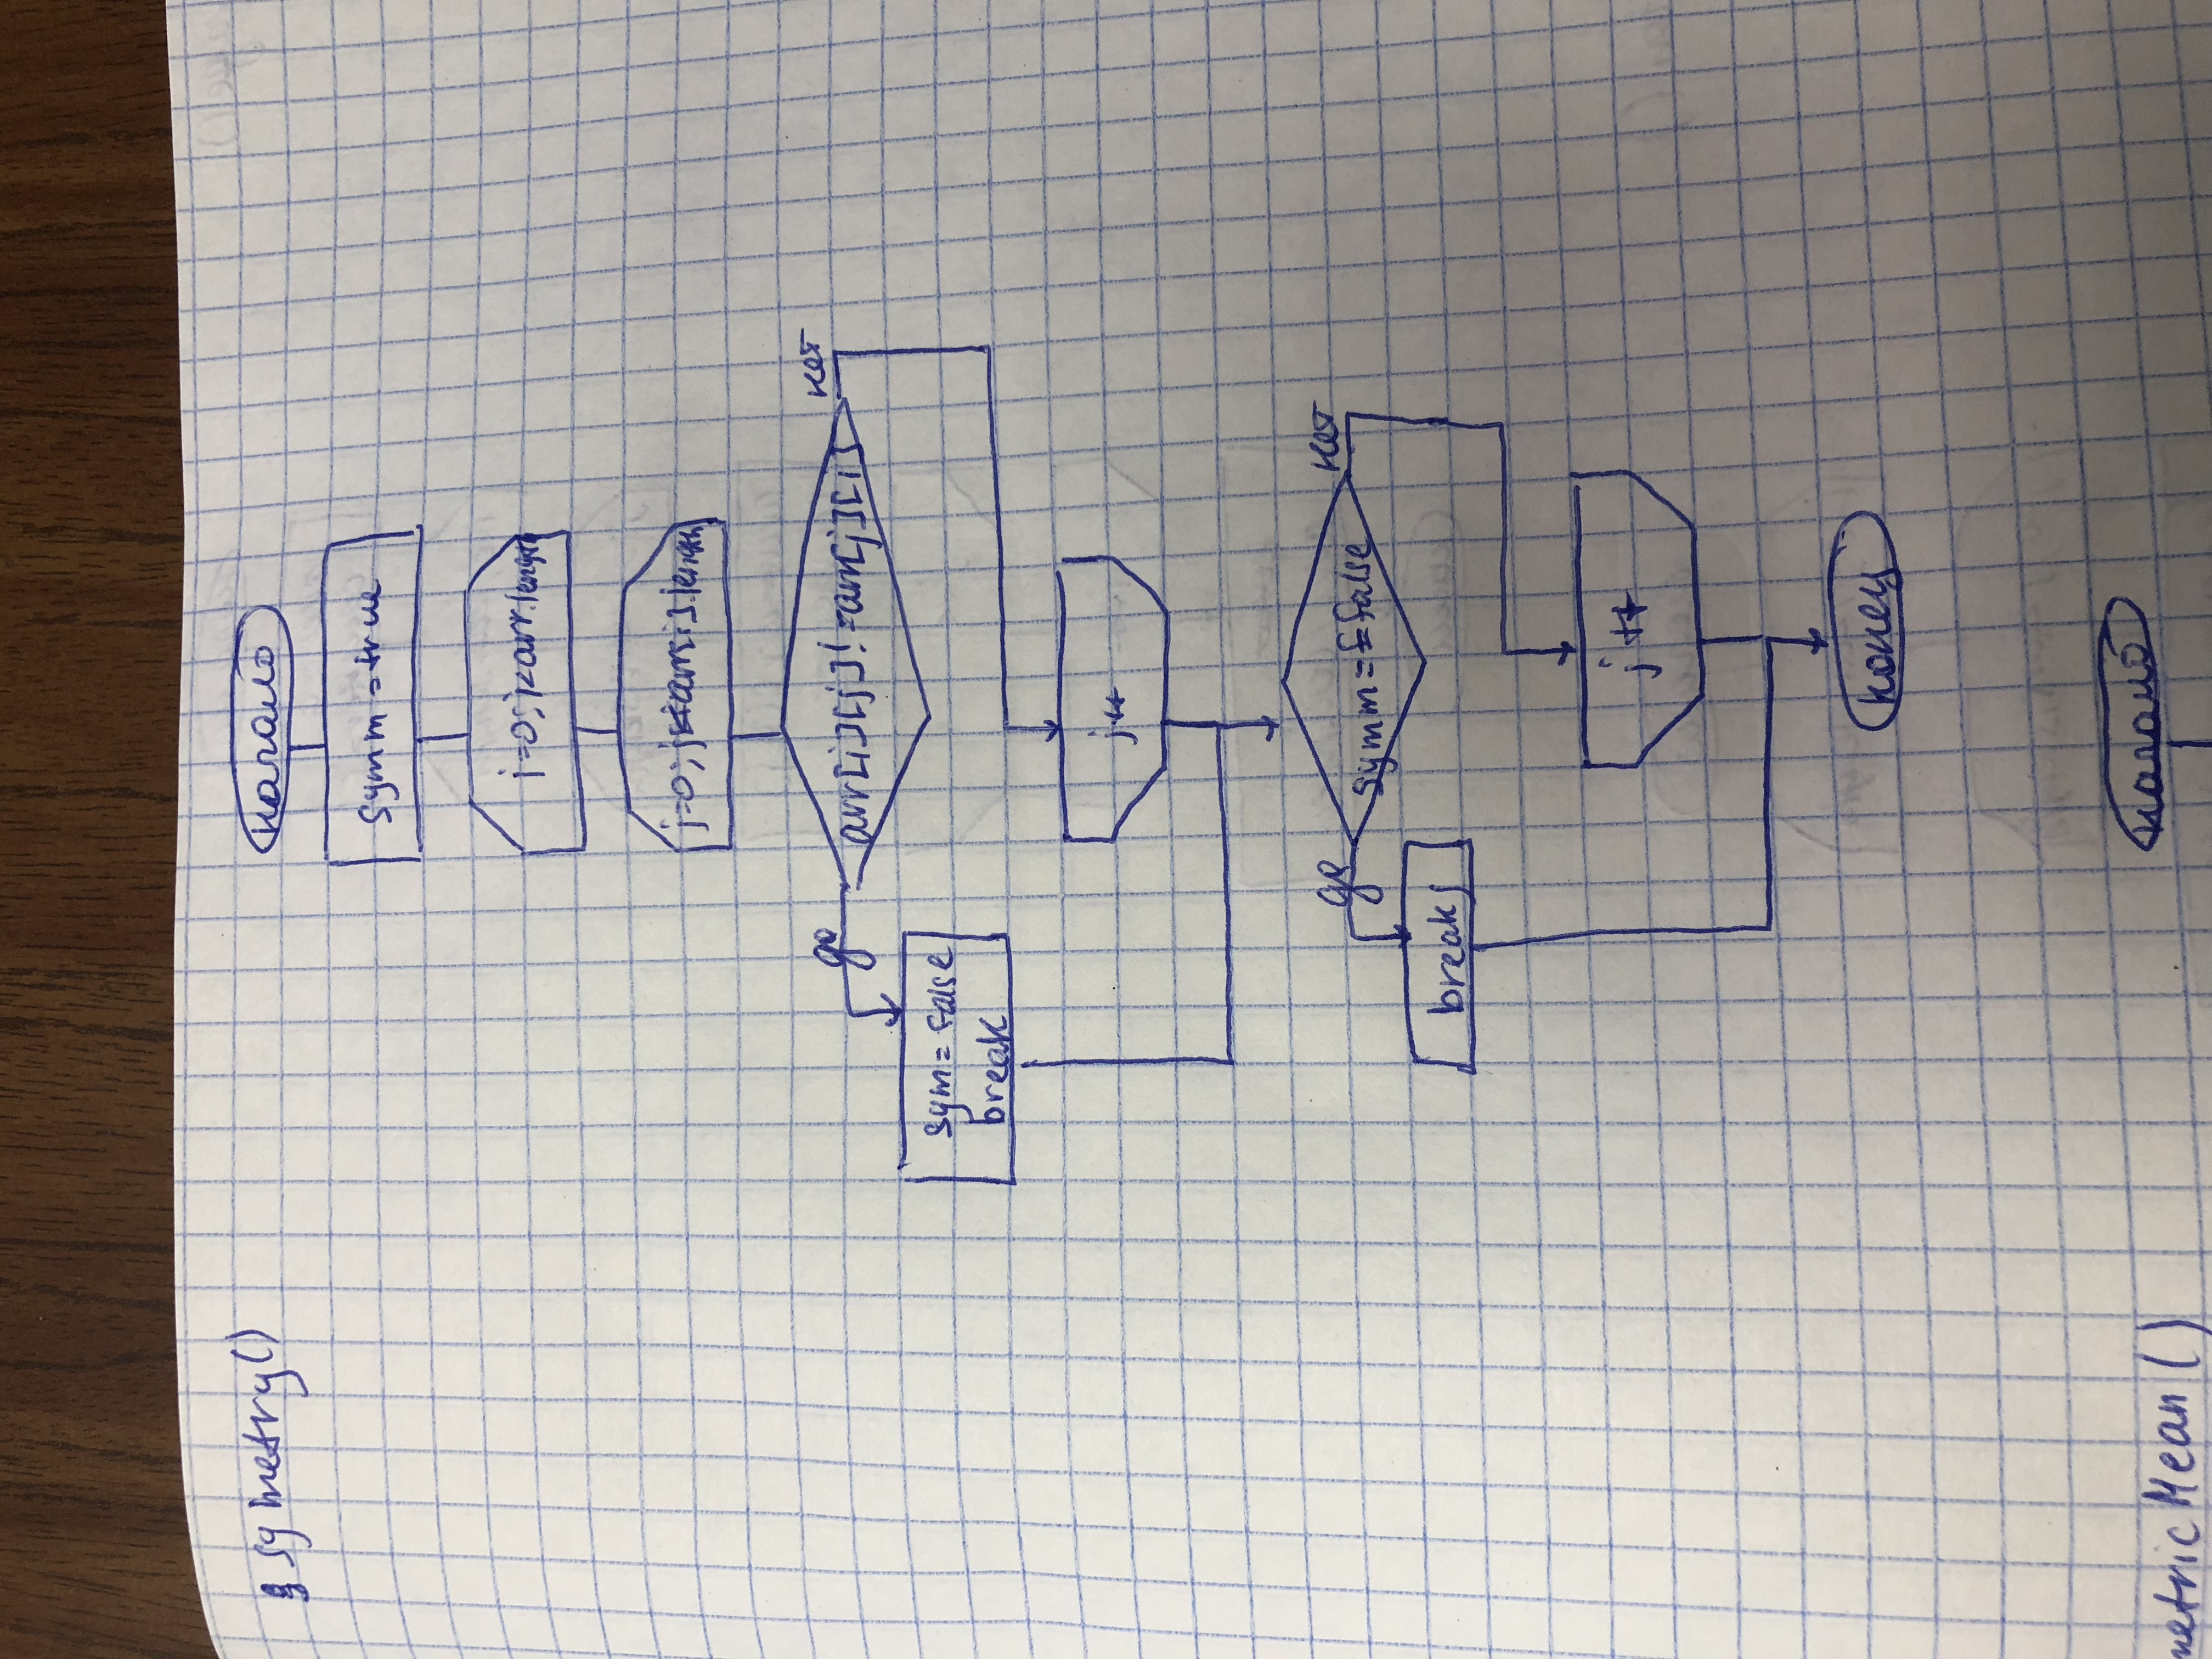 symetry()
начало
symm = true
i=0; i<arr.length
j=0; j<arr[i].length
да
arr[i][j] != arr[j][i]
нет
sym = false
break
j++
да
symm == false
нет
break;
j++
конец
начало
metricMean()